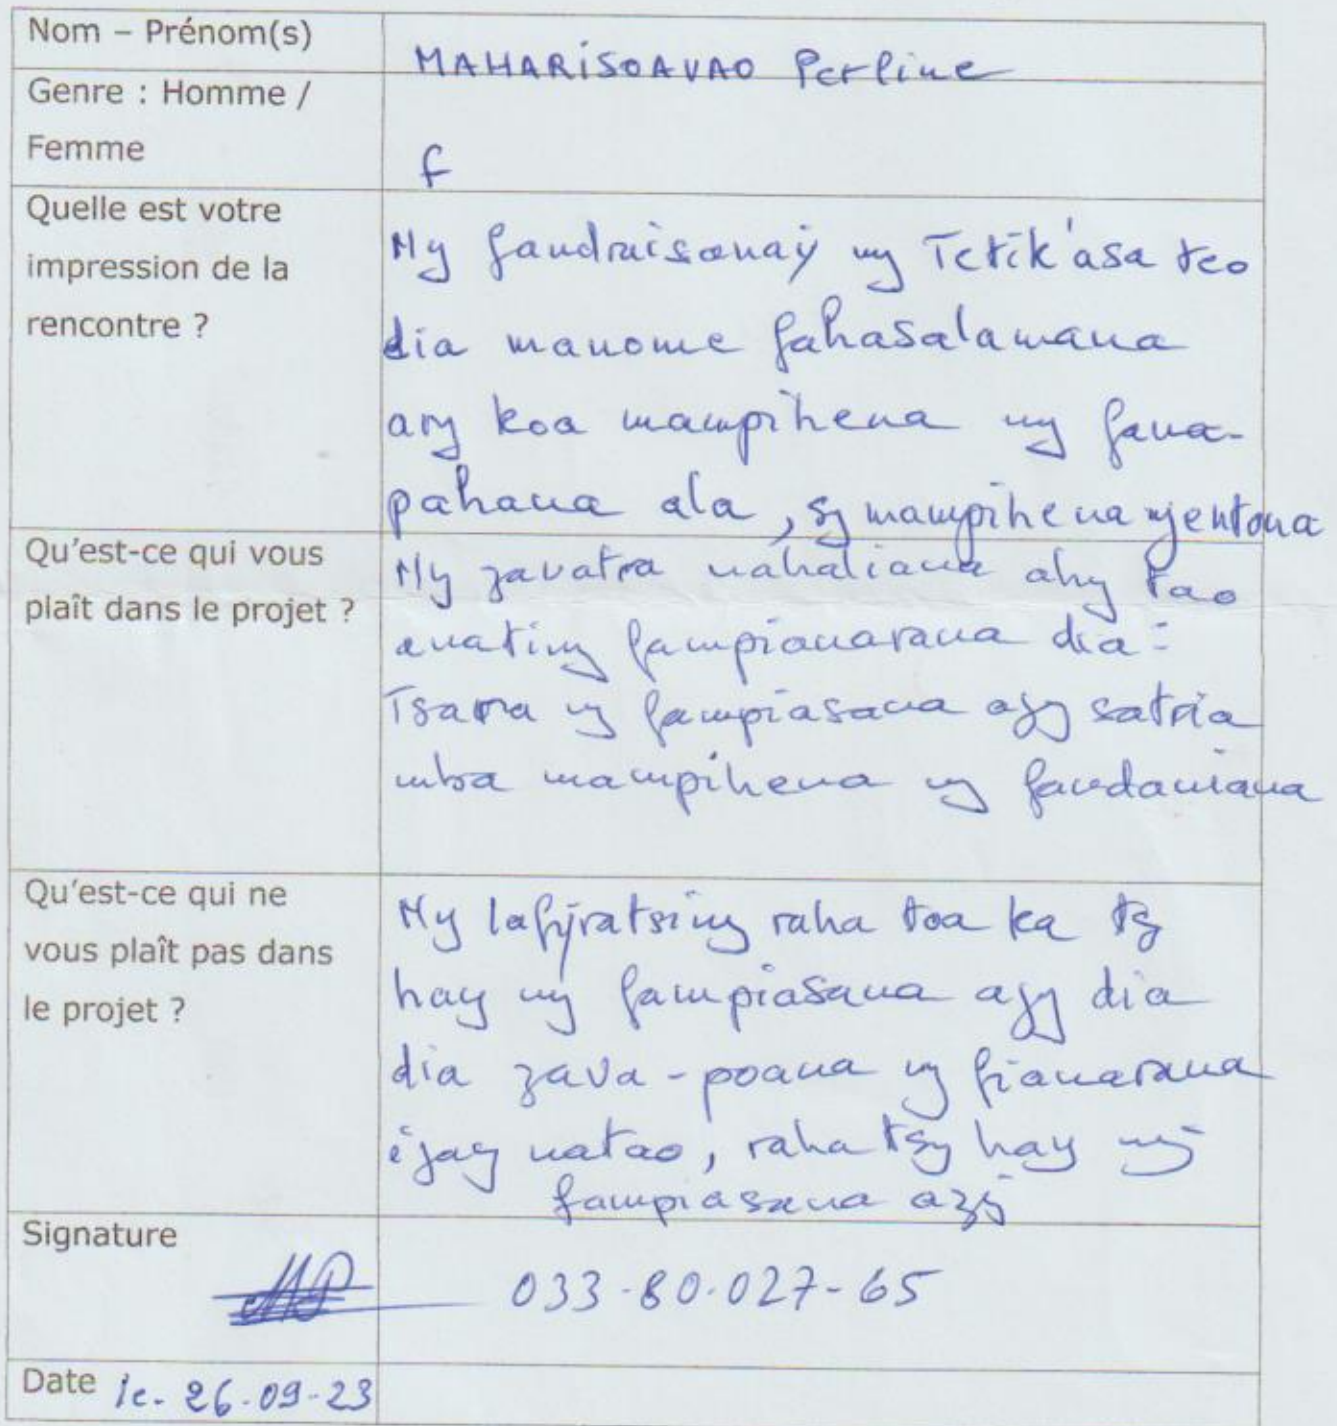 Nom – Prénom(s)
MAHARISOAVAO Perline
Genre : Homme /
Femme
f
Quelle est votre
impression de la
rencontre ?
Ny fandraisanay ny Tetik'asa teo
dia manome fahasalamana
ary koa mampihena ny fana-
pahana ala, sy mampihena njentona
Qu'est-ce qui vous
plaît dans le projet ?
Ny zavatra nahaliana ahy tao
anatiny fampianarana dia :
Tsara ny fampiasana azy satria
mba mampihena ny fandaniana
Qu'est-ce qui ne
vous plaît pas dans
le projet ?
Ny lafyratsiny raha toa ka ts
hay ny fampiasana azy dia
dia zava-poana ny fianarana
izay natao, raha tsy hay ny
fampiasana azy
Signature
033-80-027-65
Date le. 26-09-23